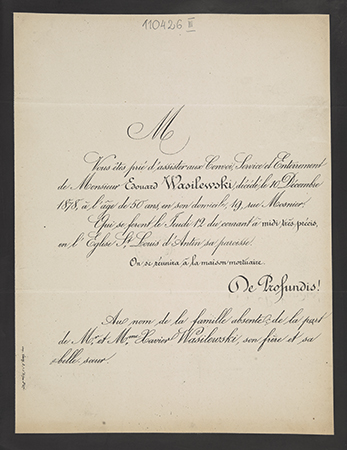 110426 III
M
Vous êtes prié d'assister aux Convoi, Service et Enterrement
de Monsieur Edouard Wasilewski, décédé le 10 Décembre
1878, à l'âge de 50 ans, en son domicile, 49, rue Mosnier.
Qui se feront le Jeudi 12 du courant à midi très précis,
en l'Eglise St. Louis d'Antin sa paroisse.
On se réunira à la maison mortuaire.
De Profundis!
Au nom de la famille absente & de la part
de Mr. et Mme. Xavier Wasilewski, son frère et sa
belle sœur.